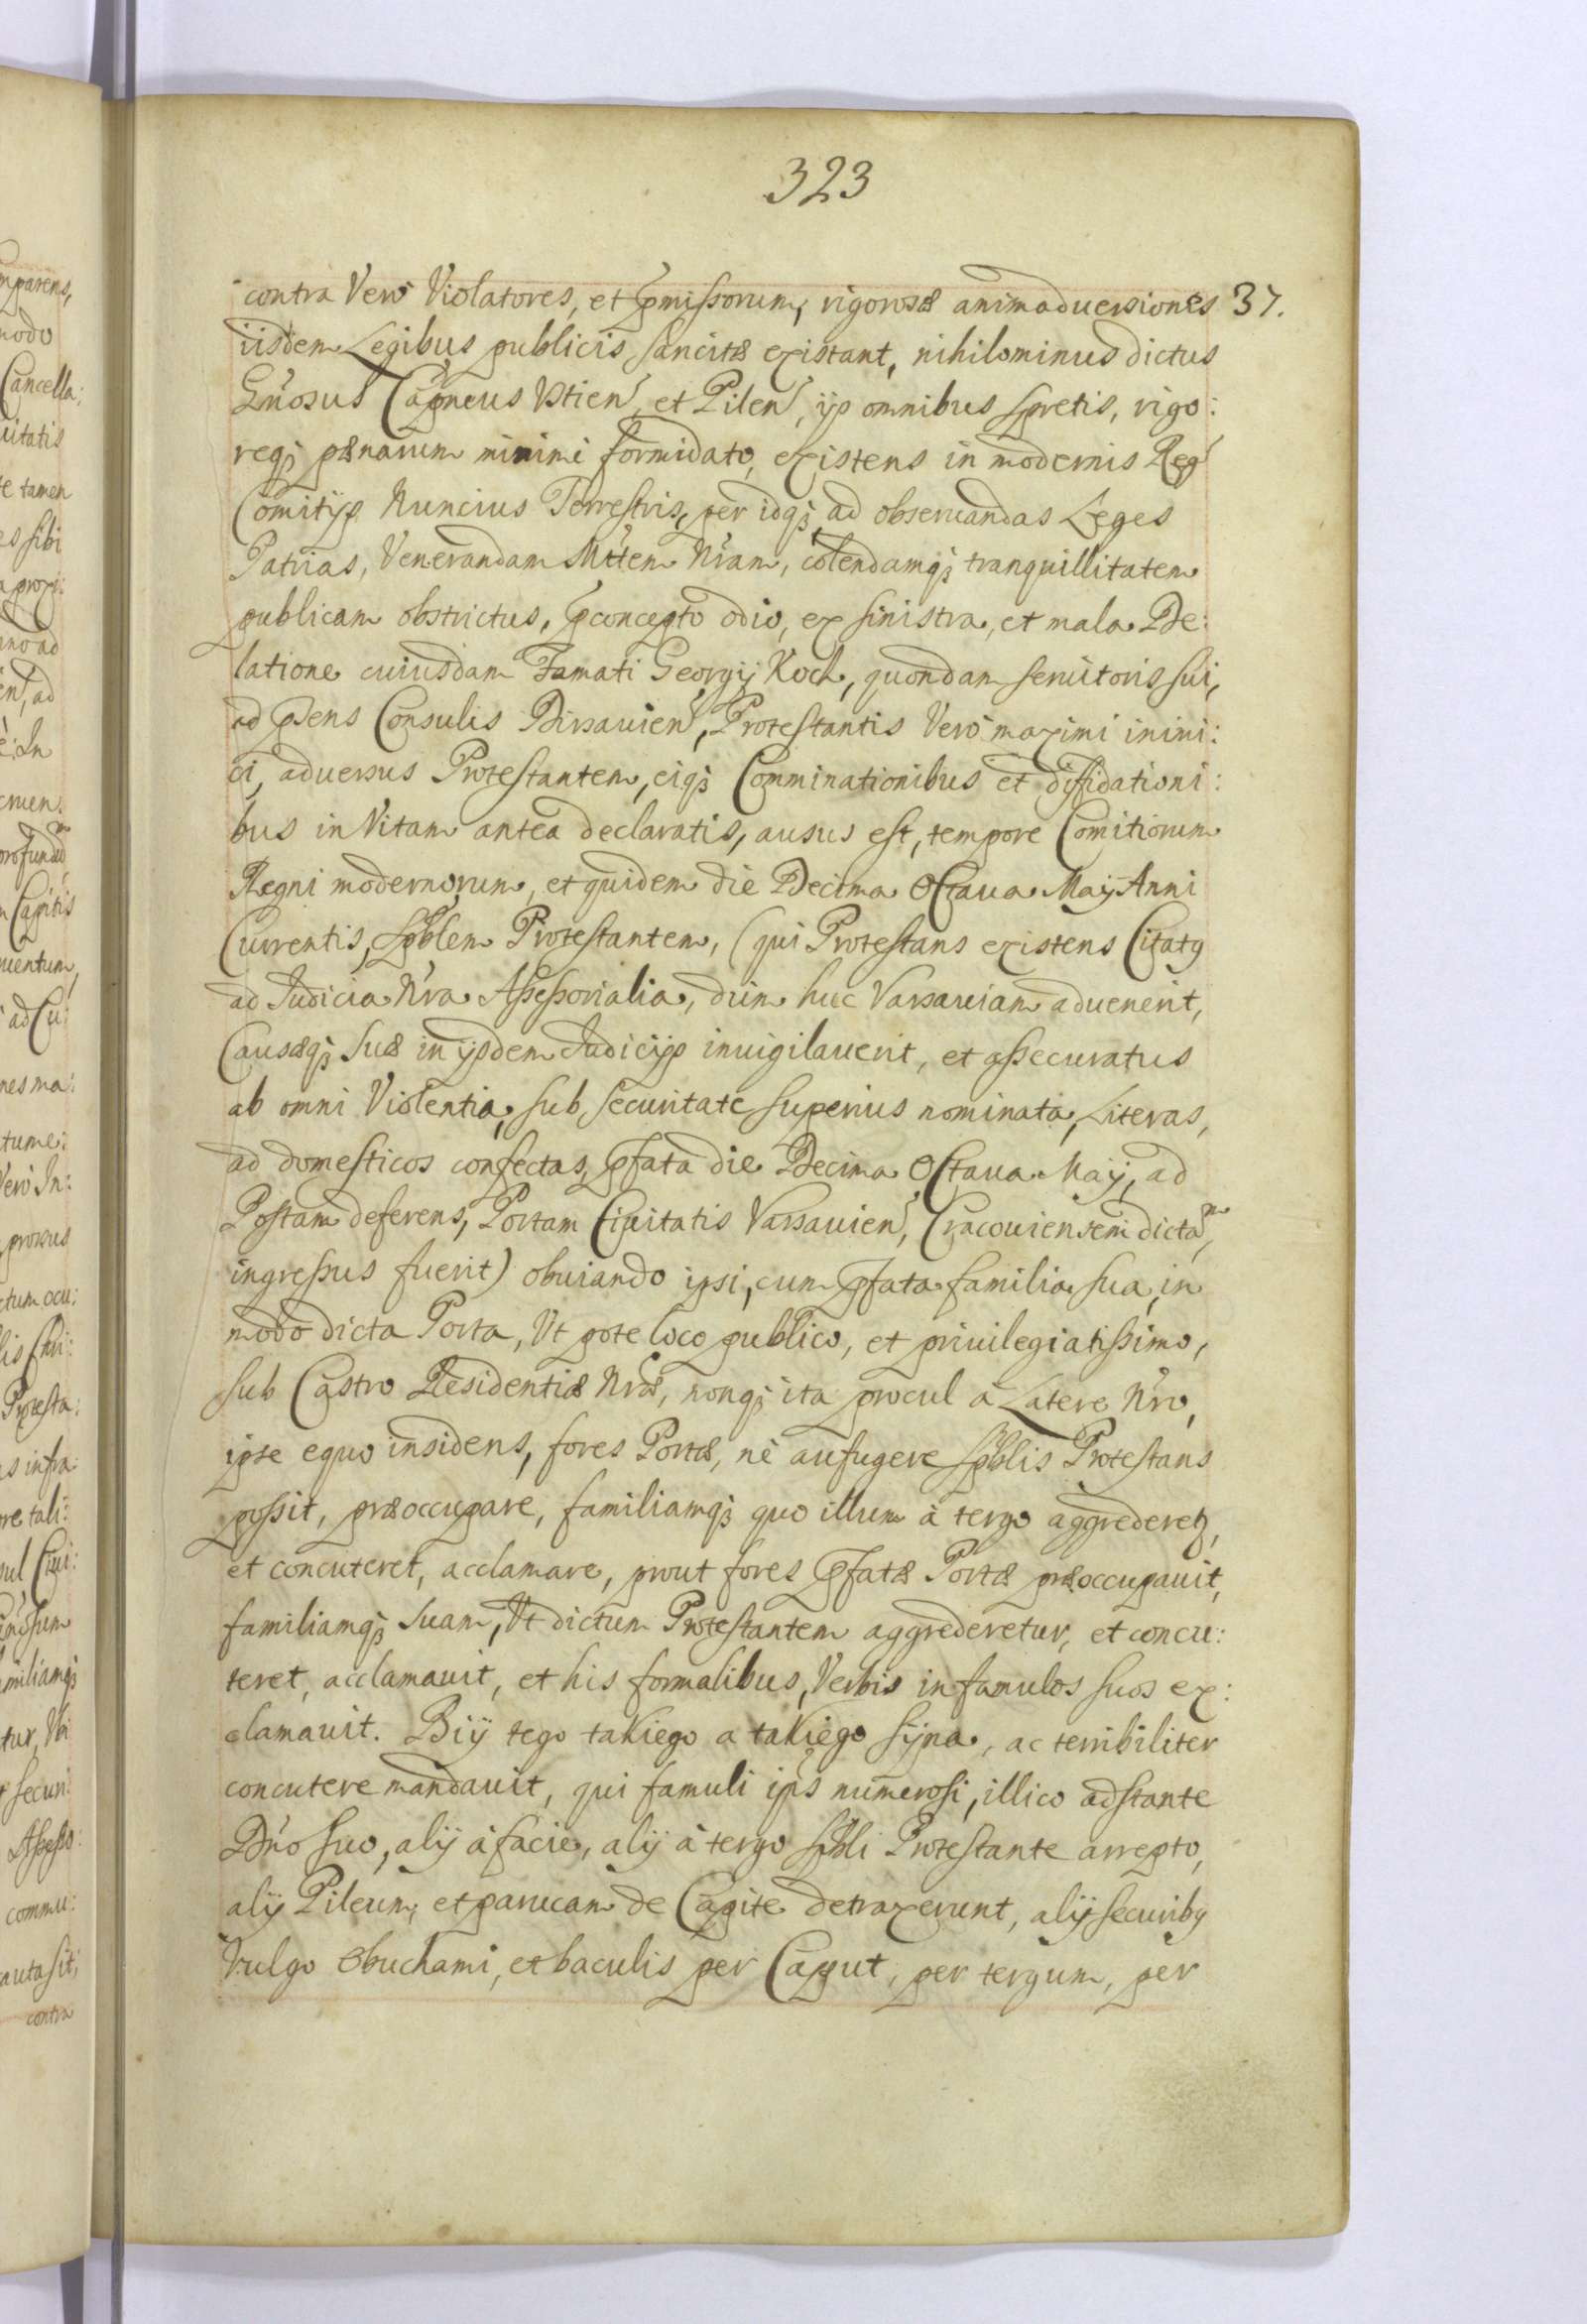 323
contra Verò Violatores, et p̃missorum, rigorosæ animaduersiones 37.
iisdem Legibus publicis sancitæ existant, nihilominus dictus
Gńosus Capneus Vstień, et Pileń, ijs omnibus spretis, rigo:
req; pænarum minimè formidato, existens in modernis Reg̃
Comitijs Nuncius Terrestris, per idq; ad obseruandas Leges
Patrias, Venerandam Mttem Nr̃am, colendamq; tranquillitatem
publicam obstrictus, p̃concepto odio, ex sinistra, et mala De:
latione cuiusdam Famati Georgij Koch, quondam seruitoris sui,
ad p̃sens Consulis Dirsauień, Protestantis Verò maximi inimi:
ci, aduersus Protestantem, eiq; Comminationibus et diffidationi:
bus in Vitam antea declaratis, ausus est, tempore Comitiorum
Regni modernorum, et quidem die Decima Octaua Maij Anni
Currentis, Spblem Protestantem, (qui Protestans existens Citatꝰ
ad Judicia Nr̃a Assessorialia, dum huc Varsauiam aduenerit,
Causæq; suæ in ijsdem Judicijs inuigilauerit, et assecuratus
ab omni Violentia, sub securitate superius nominata, Literas,
ad domesticos confectas, p̃fata die Decima Octaua Maij, ad
Postam deferens, Portam Ciuitatis Varsauień, Cracouiensem dictam,
ingressus fuerit) obuiando ipsi, cum p̃fata familia sua, in
modo dicta Porta, Vt pote loco publico, et priuilegiatissimo,
sub Castro Residentiæ Nr̃æ, nonq; ita procul à Latere Nr̃o,
ipse equo insidens, fores Portæ, nè aufugere Spblis Protestans
possit, præoccupare, familiamq; quo illum à tergo aggrederetꝰ,
et concuteret, acclamare, prout fores p̃fatæ Portæ præoccupauit,
familiamq; suam, Vt dictum Protestantem aggrederetur, et concu:
teret, acclamauit, et his formalibus, Verbis in famulos suos ex:
clamauit. Biÿ tego takiego a takiego sÿna, ac terribiliter
concutere mandauit, qui famuli ip̃s numerosi, illico adstante
Dńo suo, alij à facie, alij à tergo Spbli Protestante arrepto,
alij Pileum, et parucam de Capite detraxerunt, alij securibꝰ
Vulgo obuchami, et baculis per Caput, per tergum, per